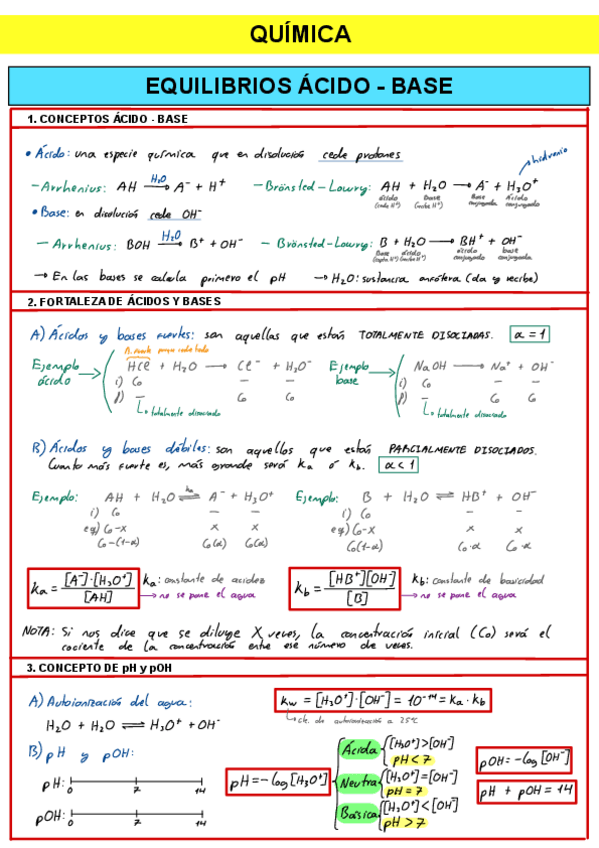 QUÍMICA
EQUILIBRIOS ÁCIDO - BASE
1. CONCEPTOS ÁCIDO - BASE
• Ácido: una especie química que en disolución cede protones
→ hidronio
– Arrhenius: AH —H₂O→ A⁻ + H⁺ – Brönsted-Lowry: AH + H₂O → A⁻ + H₃O⁺
ácido (cede H⁺) Base (capta H⁺) Base conjugada ácido conjugado
• Base: en disolución cede OH⁻
– Arrhenius: BOH —H₂O→ B⁺ + OH⁻ – Brönsted-Lowry: B + H₂O → BH⁺ + OH⁻
Base (capta H⁺) ácido (cede H⁺) ácido conjugado base conjugada
→ En las bases se calcula primero el pH → H₂O: sustancia anfótera (da y recibe)
2. FORTALEZA DE ÁCIDOS Y BASES
A) Ácidos y bases fuertes: son aquellas que están TOTALMENTE DISOCIADAS. α = 1
A. fuerte porque cede todo
Ejemplo ácido HCl + H₂O → Cl⁻ + H₃O⁻ Ejemplo base NaOH → Na⁺ + OH⁻
i) C₀ – – i) C₀ – –
f) – C₀ C₀ f) – C₀ C₀
↳ totalmente disociado ↳ totalmente disociado
B) Ácidos y bases débiles: son aquellos que están PARCIALMENTE DISOCIADOS.
Cuanto más fuerte es, más grande será ka ó kb. α < 1
Ejemplo: AH + H₂O ⇌ A⁻ + H₃O⁺ Ejemplo: B + H₂O ⇌ HB⁺ + OH⁻
ka
i) C₀ – – i) C₀ – –
eq) C₀-x x x eq) C₀-x x x
C₀-(1-α) C₀(α) C₀(α) C₀(1-α) C₀·α C₀α
ka = [A⁻]·[H₃O⁺] / [AH] ka: constante de acidez kb = [HB⁺][OH⁻] / [B] kb: constante de basicidad
→ no se pone el agua → no se pone el agua
NOTA: Si nos dice que se diluye X veces, la concentración inicial (C₀) será el
cociente de la concentración entre ese número de veces.
3. CONCEPTO DE pH y pOH
A) Autoionización del agua: kw = [H₃O⁺]·[OH⁻] = 10⁻¹⁴ = ka·kb
↳ cte. de autoionización a 25ºC
H₂O + H₂O ⇌ H₃O⁺ + OH⁻
B) pH y pOH:
pH: 0 7 14
pOH: 0 7 14
pH = -log[H₃O⁺]
Ácida [H₃O⁺]>[OH⁻]
pH < 7
Neutra [H₃O⁺]=[OH⁻]
pH = 7
Básica [H₃O⁺]<[OH⁻]
pH > 7
pOH = -log[OH⁻]
pH + pOH = 14